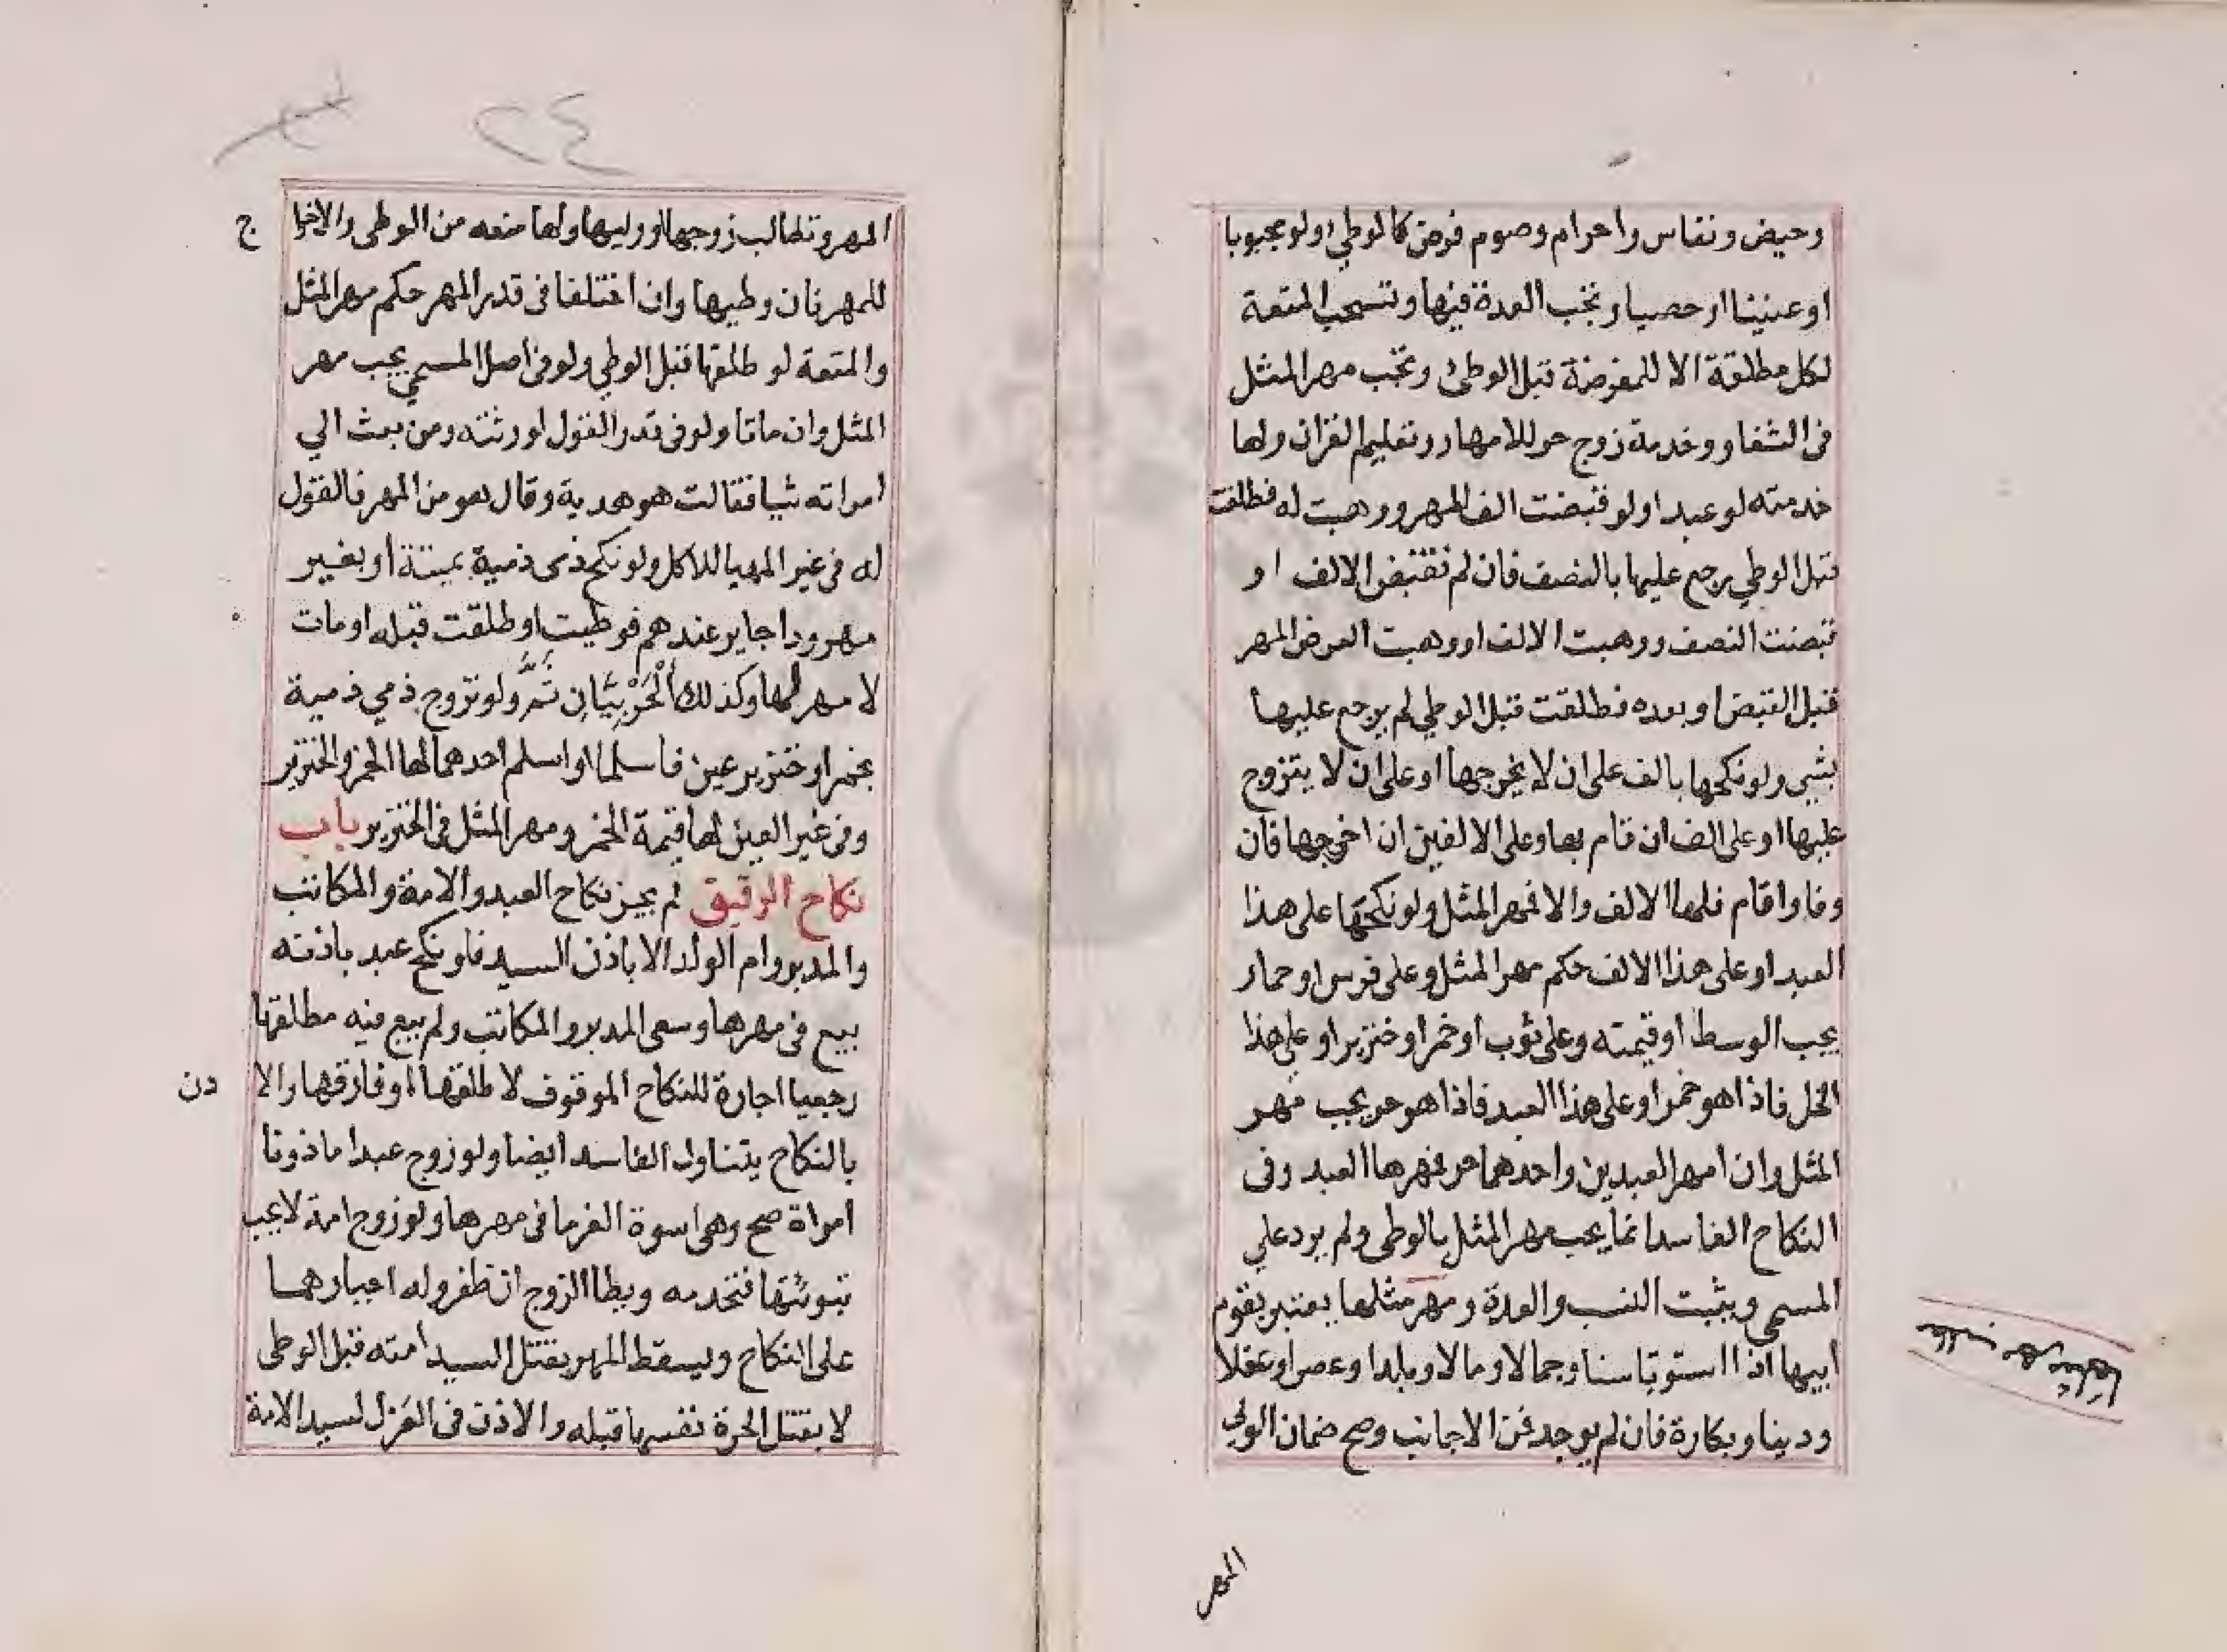 وحيض ونفاس واحرام وصوم فرض كالوطي ولو مجبوبا
او عنينا او حصيا وتجب العدة فيها وتستحب المتعة
لكل مطلقة الا للمفوضة قبل الوطئ وتجب مهر المثل
في الشغار وخدمة زوج حر للامهار وتعليم القران ولها
خدمته لو عبدا ولو قبضت الف المهر ووهبت له فطلقت
قبل الوطي رجع عليها بالنصف فان لم تقبض الالف او
قبضت النصف ووهبت الالف او وهبت العرض المهر
قبل القبض او بعده فطلقت قبل الوطي لم يرجع عليها
بشي ولو نكحها بالف على ان لا يخرجها او على ان لا يتزوج
عليها او على الف ان قام بها وعلى الالفين ان اخرجها فان
وفا واقام فلها الالف والا فمهر المثل ولو نكحها على هذا
العبد او على هذا الالف حكم مهر المثل وعلى فرس او حمار
يجب الوسط او قيمته وعلى ثوب او خمر او خنزير او على هذا
الخل فاذا هو خمر او على هذا العبد فاذا هو حر يجب مهر
المثل وان امهر العبدين واحدهما حر فمهرها العبد وفى
النكاح الفاسد انما يجب مهر المثل بالوطى ولم يرد علي
المسمى ويثبت النسب والعدة ومهر مثلها يعتبر بقوم
ابيها اذا استوتا سنا وجمالا ومالا وبلدا وعصرا وعقلا
ودينا وبكارة فان لم يوجد فمن الاجانب وصح ضمان الولي
مهر مثلها
المهر
٢٤
المهر وتطالب زوجها او وليها ولها منعه من الوطى والاخرا ج
للمهر فان وطيها وان اختلفا فى قدر المهر حكم مهر المثل
والمتعة لو طلقها قبل الوطي ولو فى اصل المسمي يجب مهر
المثل وان ماتا ولو فى قدر القول لورثته ومن بعث الي
امراته شيا فقالت هو هدية وقال هو من المهر فالقول
له فى غير المهيا للاكل ولو نكح ذمى ذمية بميتة او بغير
مهر وذا جايز عندهم فوطيت او طلقت قبله او مات
لا مهر لها وكذلك اَلْحَرْبِيَّانِ ثَمَّ ولو تزوج ذمي ذمية
بخمر او خنزير عين فاسلما او اسلم احدهما لها الخمر والخنزير
وفى غير العين لها قيمة الخمر ومهر المثل فى الخنزير باب
نكاح الرقيق لم يجز نكاح العبد والامة والمكاتب
والمدبر وام الولد الا باذن السيد فلو نكح عبد باذنه
بيع فى مهرها وسعى المدبر والمكاتب ولم يبع فيه مطلقها
رجعيا اجازة للنكاح الموقوف لا طلقها او فارقها والا ذن
بالنكاح يتناول الفاسد ايضا ولو زوج عبدا ماذونا
امراة صح وهى اسوة الغرما فى مهرها ولو زوج امة لا يجب
تبوئتها فتخدمه ويطا الزوج ان ظفر وله اجبارهما
على النكاح ويسقط المهر بقتل السيد امته قبل الوطى
لا بقتل الحرة نفسها قبله والاذن فى العزل لسيد الامة